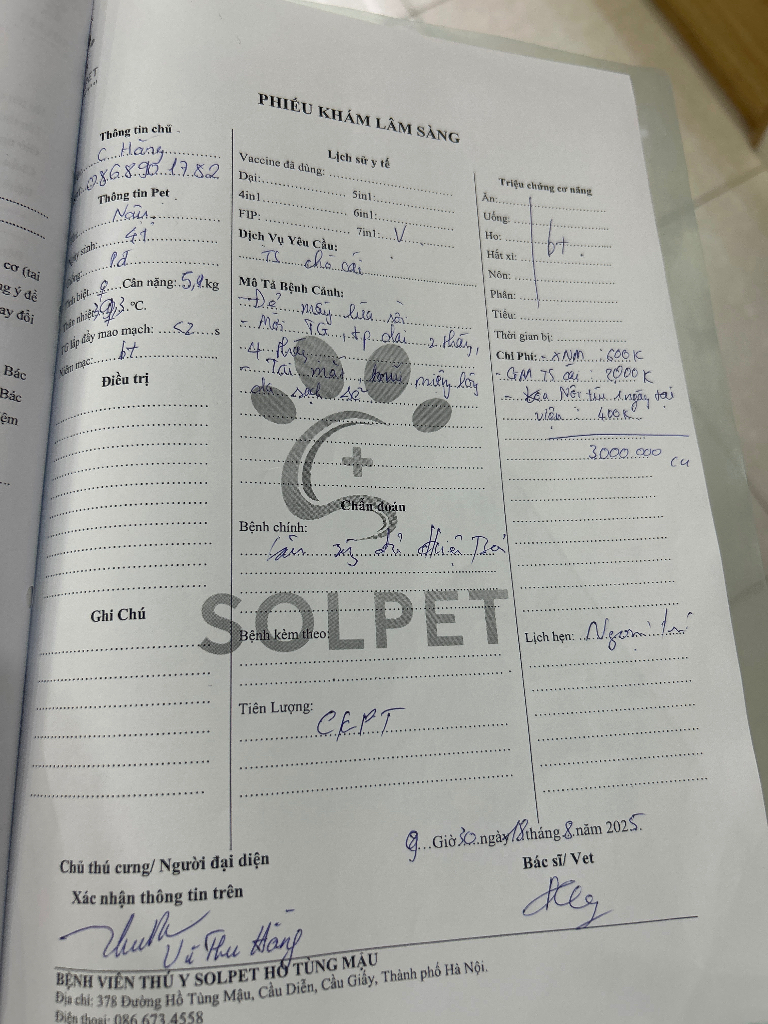 PHIẾU KHÁM LÂM SÀNG
Thông tin chủ
C Hằng
086.890.1782
Thông tin Pet
Nâu
sinh: 4T
Pđ
biệt: ♀ Cân nặng: 5,9 kg
nhiệt: 39,3 °C.
TG lấp đầy mao mạch: <2 s
Niêm mạc: bt
Điều trị
Ghi Chú
Lịch sử y tế
Vaccine đã dùng:
Dại: 5in1:
4in1: 6in1:
FIP: 7in1: V
Dịch Vụ Yêu Cầu:
TS chó cái
Mô Tả Bệnh Cảnh:
- Đẻ mấy lứa rồi
- Mới TG, tp dại 2 tháng,
4 tháng
- Tai mắt mũi miệng lông
da sạch sẽ
Chẩn đoán
Bệnh chính:
Bệnh kèm theo:
Tiên Lượng:
CEPT
SOLPET
Triệu chứng cơ năng
Ăn:
Uống:
Ho: bt
Hắt xì:
Nôn:
Phân:
Tiểu:
Thời gian bị:
Chi Phí: - XNM : 600K
- GM TS cái : 2000K
- Nội trú 1 ngày tại
viện : 400K
3000.000
Lịch hẹn: Ngoại trú
9 Giờ 30 ngày 18 tháng 8 năm 2025.
Chủ thú cưng/ Người đại diện
Xác nhận thông tin trên
Vũ Thu Hằng
Bác sĩ/ Vet
BỆNH VIỆN THÚ Y SOLPET HỒ TÙNG MẬU
Địa chỉ: 378 Đường Hồ Tùng Mậu, Cầu Diễn, Cầu Giấy, Thành phố Hà Nội.
Điện thoại: 086.673.4558
cơ (tai
ng ý để
ay đổi
Bác
Bác
ệm